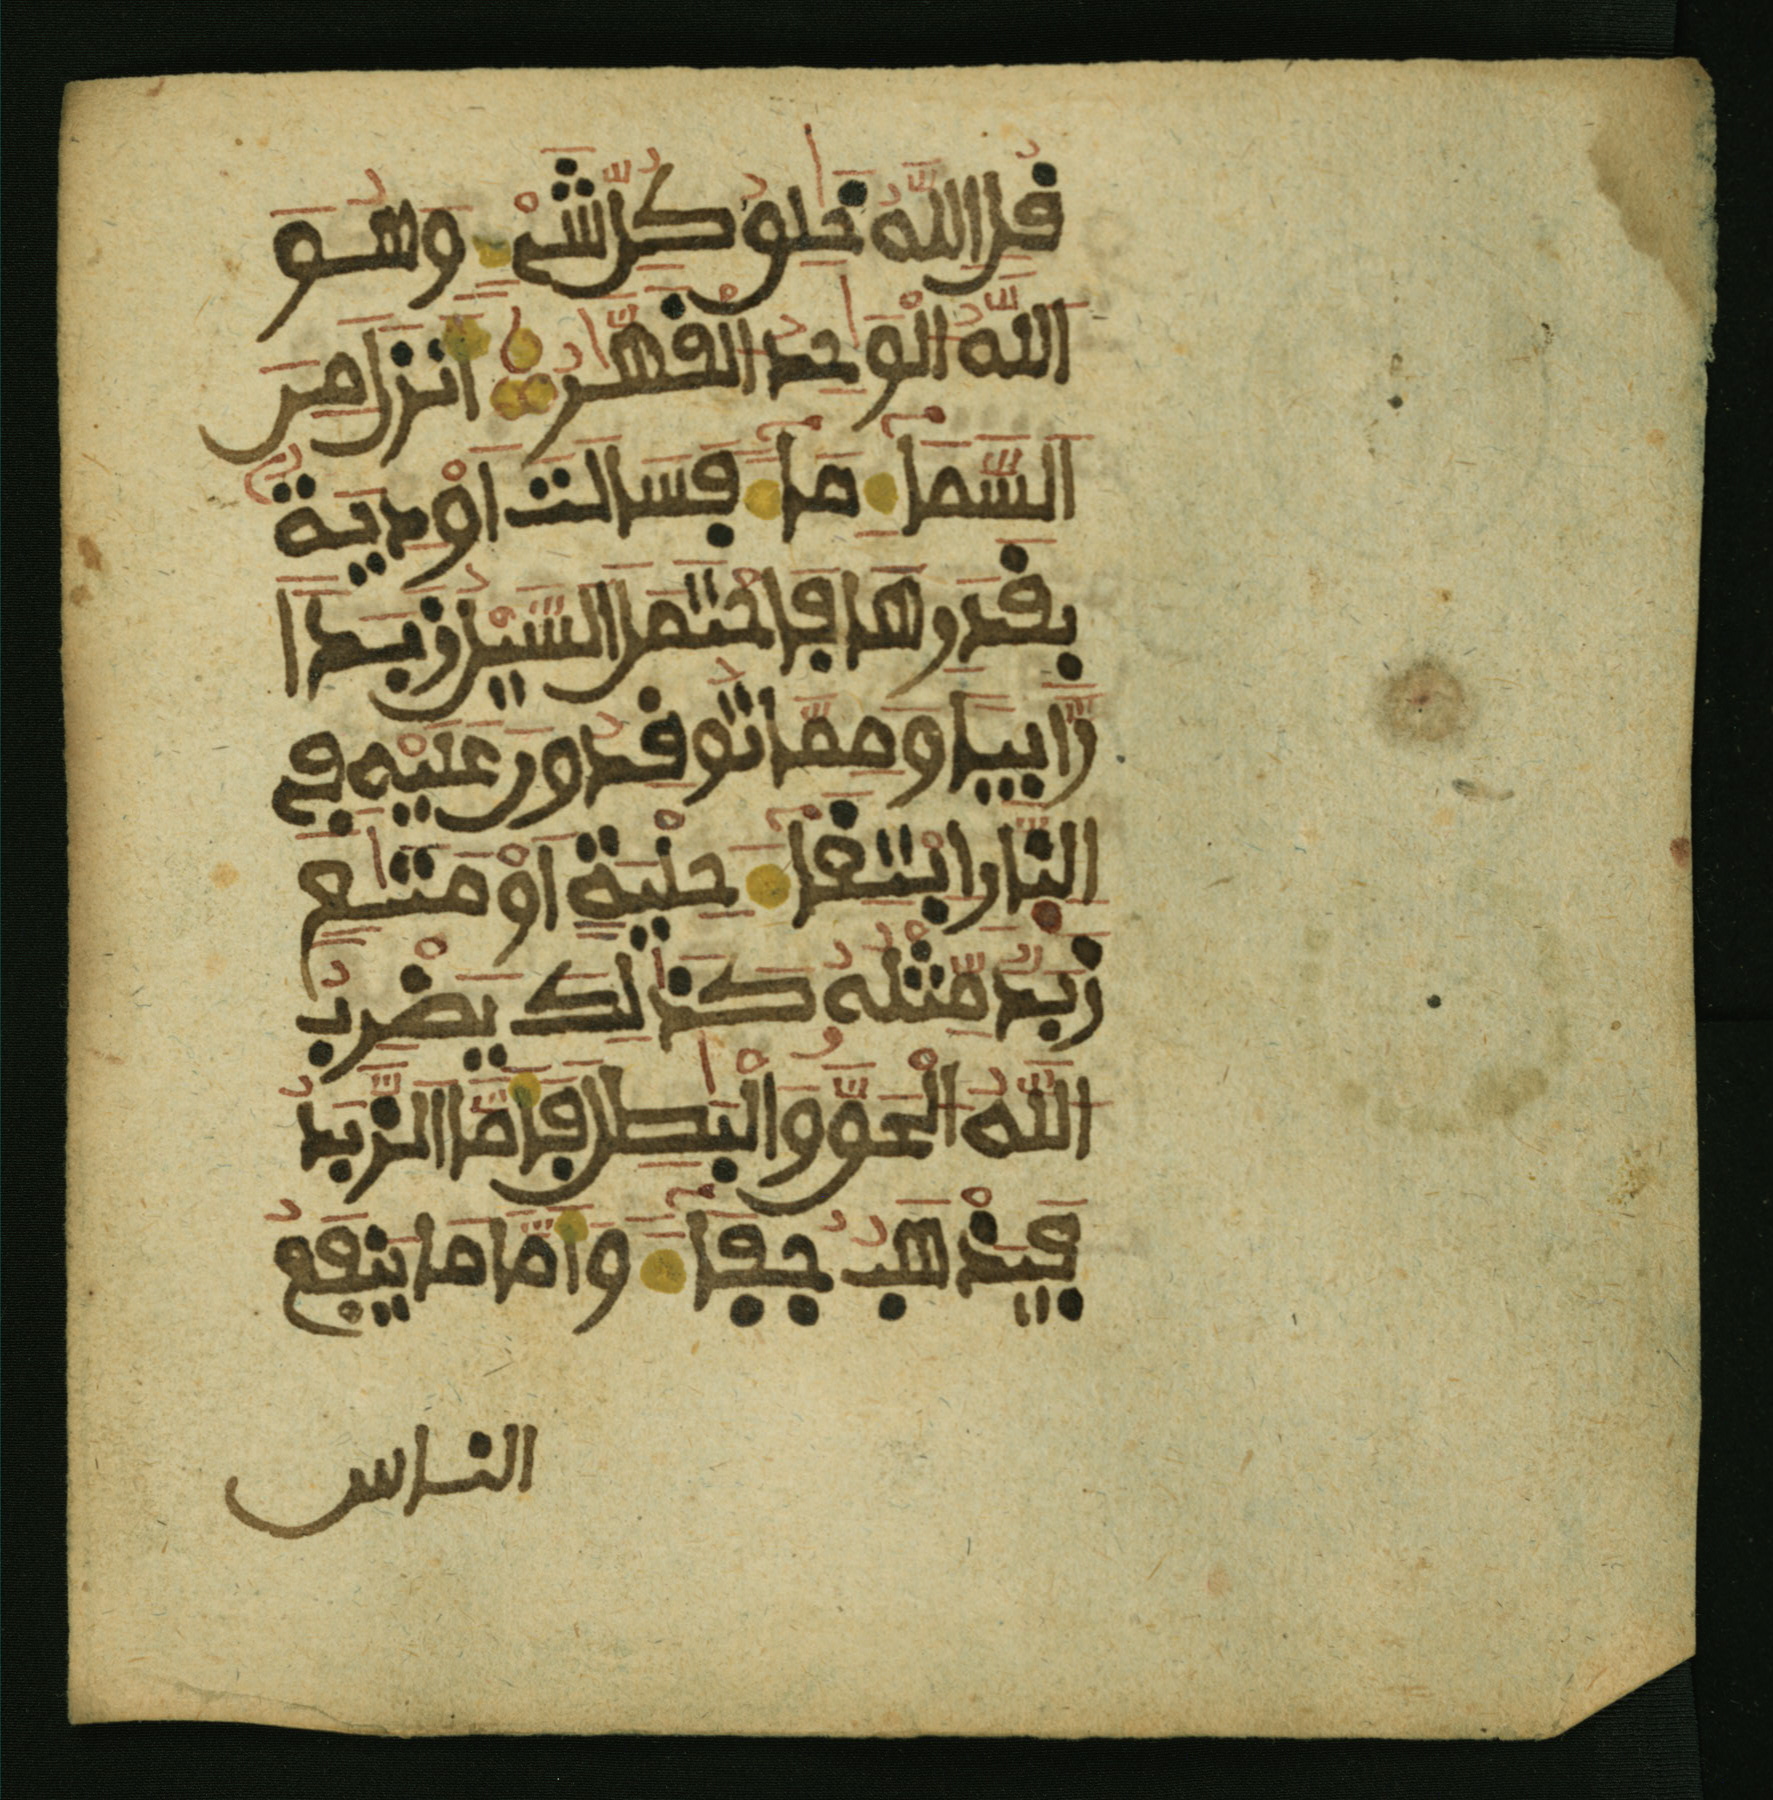 قُلِ اللَّهُ خَٰلِقُ كُلِّ شَىْءٍ وَهُوَ
اللَّهُ الْوَٰحِدُ الْقَهَّٰرُ أَنزَلَ مِنَ
السَّمَآءِ مَآءً فَسَالَتْ أَوْدِيَةٌ
بِقَدَرِهَا فَاحْتَمَلَ السَّيْلُ زَبَدًا
رَّابِيًا وَمِمَّا تُوقِدُونَ عَلَيْهِ فِى
النَّارِ ابْتِغَآءَ حِلْيَةٍ أَوْ مَتَٰعٍ
زَبَدٌ مِّثْلُهُ كَذَٰلِكَ يَضْرِبُ
اللَّهُ الْحَقَّ وَالْبَٰطِلَ فَأَمَّا الزَّبَدُ
فَيَذْهَبُ جُفَآءً وَأَمَّا مَا يَنفَعُ
الناس